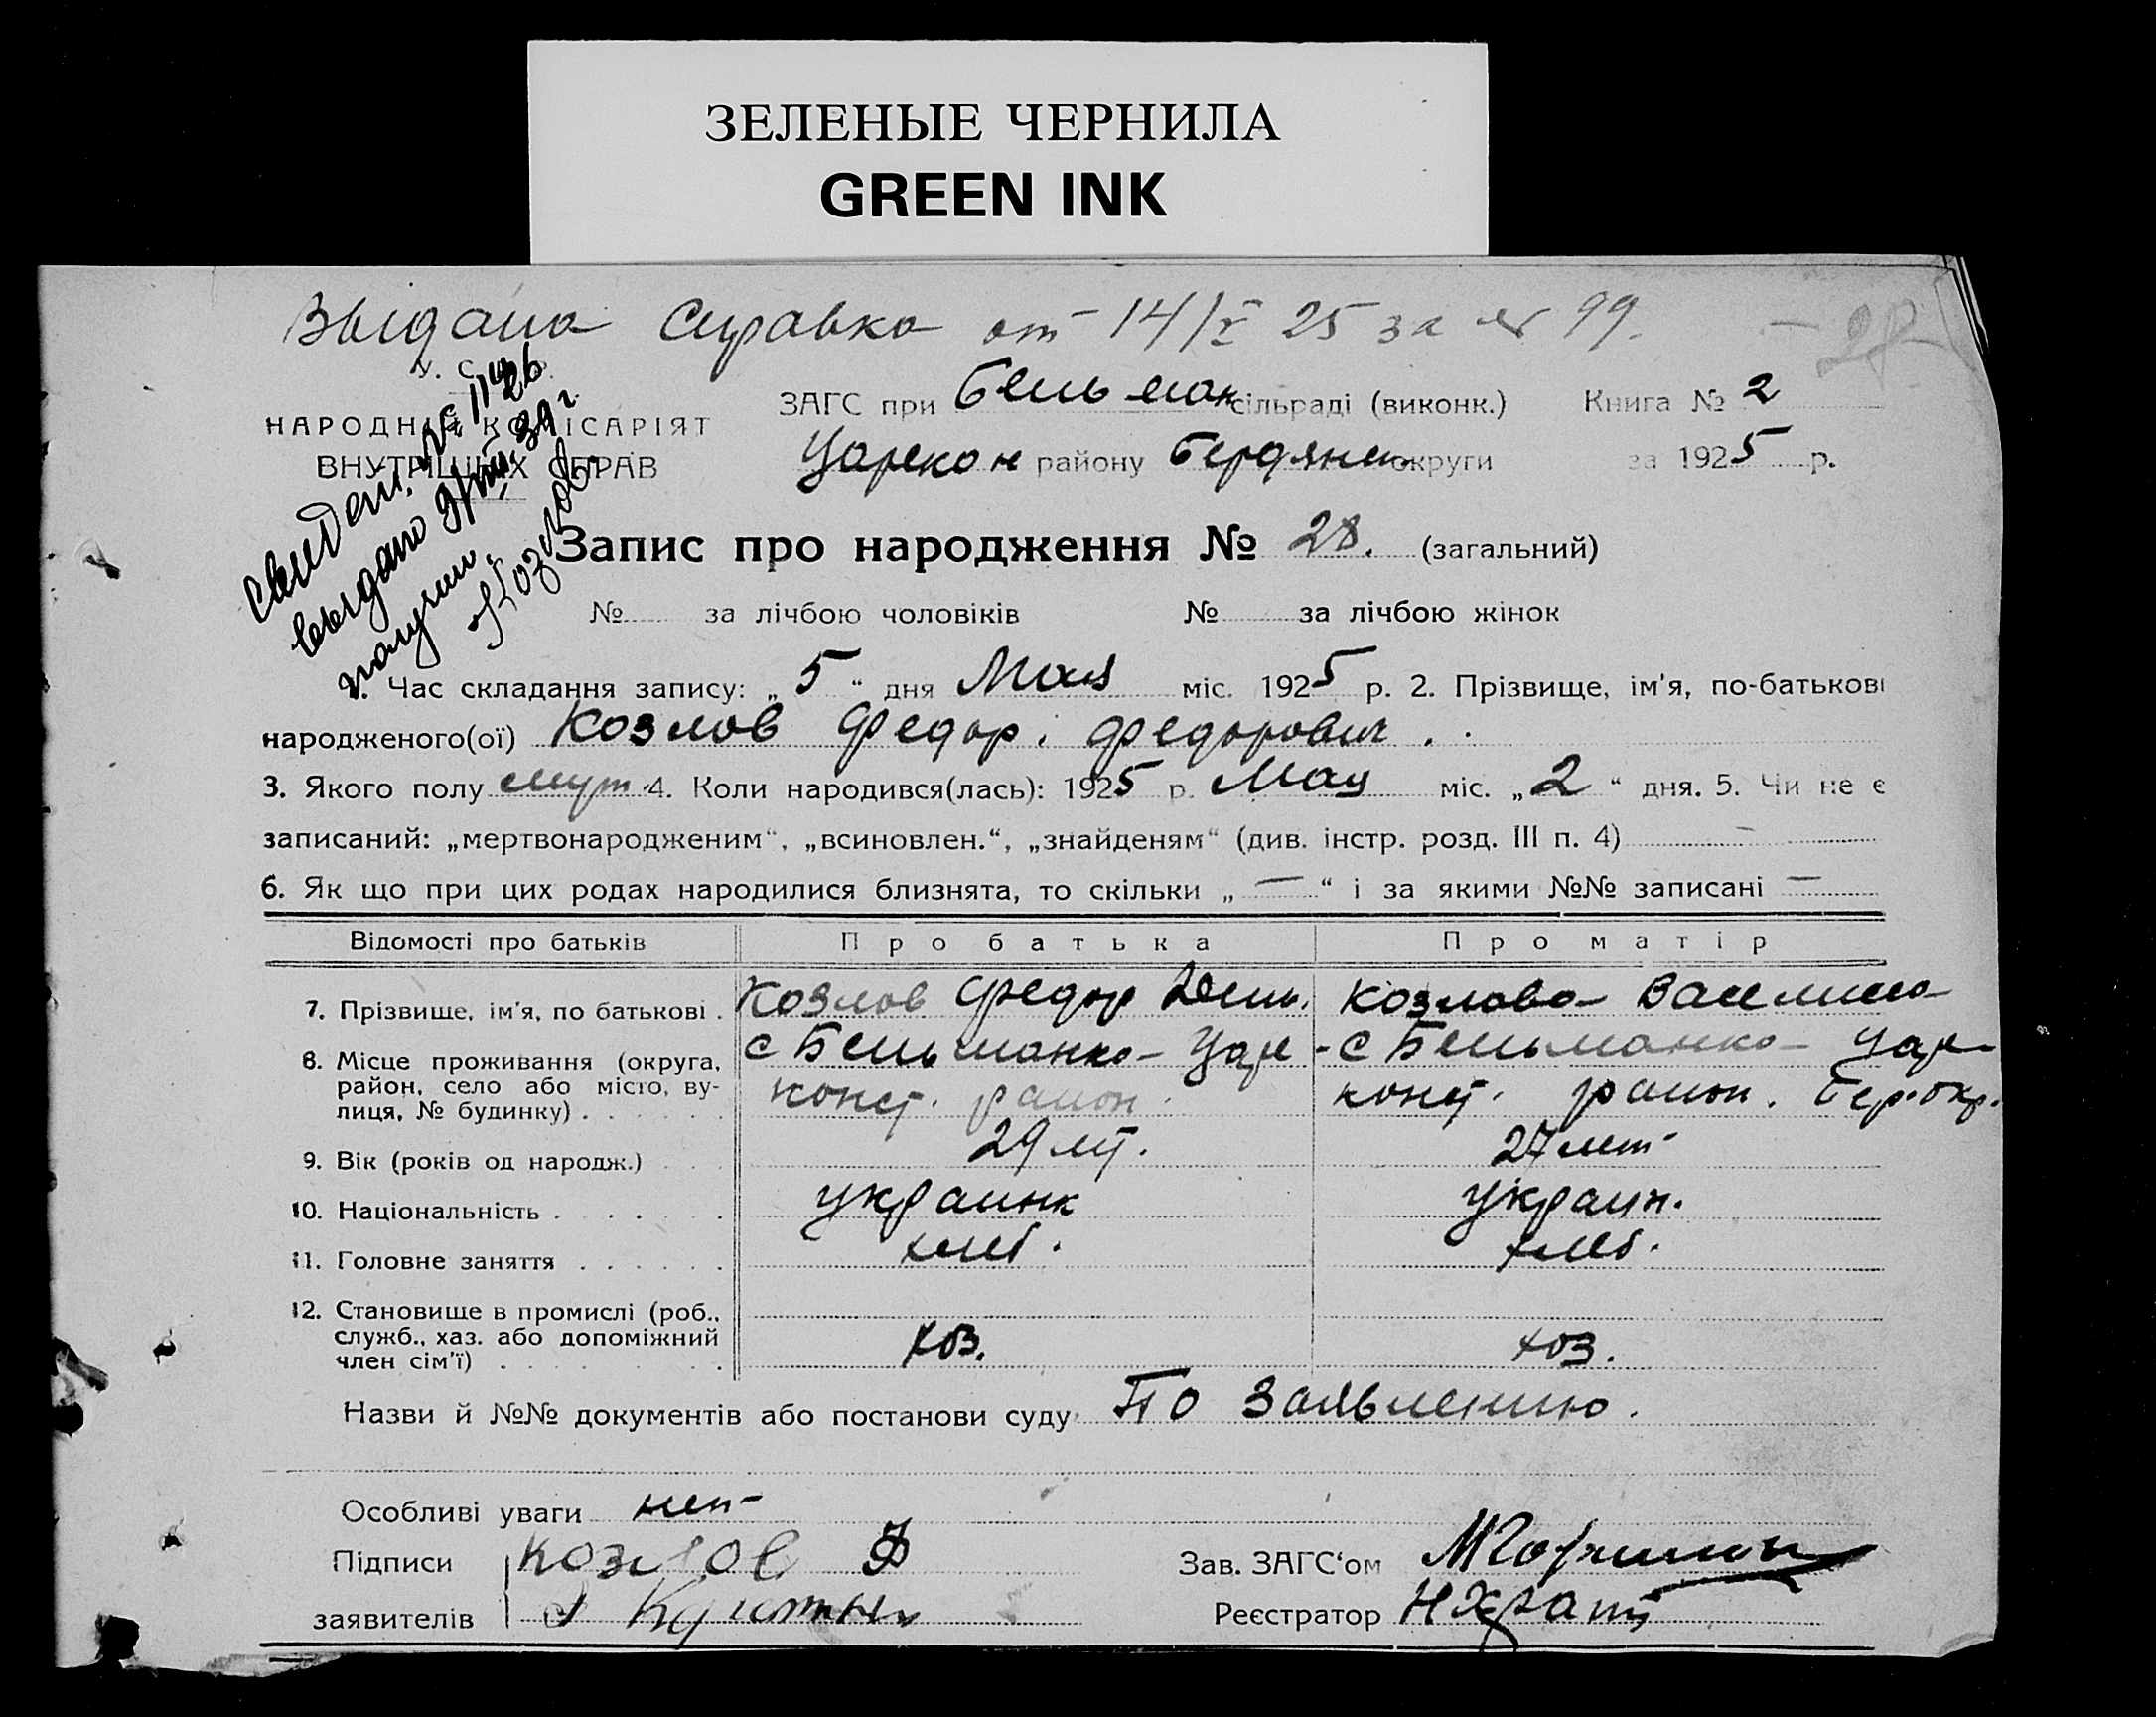 ЗЕЛЕНЫЕ ЧЕРНИЛА
GREEN INK
Выдана Справка от 14/V 25 за № 99.
У. С.
НАРОДНІЙ КОМІСАРІЯТ
ВНУТРІШНІХ СПРАВ
свидет. №
выдано 39 г.
получил.
Козлов
ЗАГС при Бельман сільраді (виконк.) Книга № 2
Царекон району Бердянск округи за 1925 р.
Запис про народження № 28. (загальний)
№ за лічбою чоловіків № за лічбою жінок
1. Час складання запису: „5“ дня Мая міс. 1925 р. 2. Прізвище, ім'я, по-батькові
народженого(ої) Козлов Федор. Федорович.
3. Якого полу муж. 4. Коли народився(лась): 1925 р. Мая міс. „2“ дня. 5. Чи не є
записаний: „мертвонародженим“, „всиновлен.“, „знайденям“ (див. інстр. розд. III п. 4) –
6. Як що при цих родах народилися близнята, то скільки „—“ і за якими №№ записані —
Відомості про батьків Про батька Про матір
7. Прізвище, ім'я, по батькові . Козлов Федор Козлова
8. Місце проживання (округа, с Бельманка Царе- с Бельманка Царе-
район, село або місто, ву- конст. район. конст. район. Бер. окр.
лиця, № будинку) . . . . .
9. Вік (років од народж.) 29 лт. 27 лет
10. Національність . . . . . . украинк украин.
11. Головне заняття . . . . . . хлеб. хлеб.
12. Становище в промислі (роб.,
служб., хаз. або допоміжний хоз. хоз.
член сім'ї) . . . . . .
Назви й №№ документів або постанови суду По Заявлению.
Особливі уваги нет
Підписи Козлов Ф Зав. ЗАГС‘ом
заявителів Реєстратор